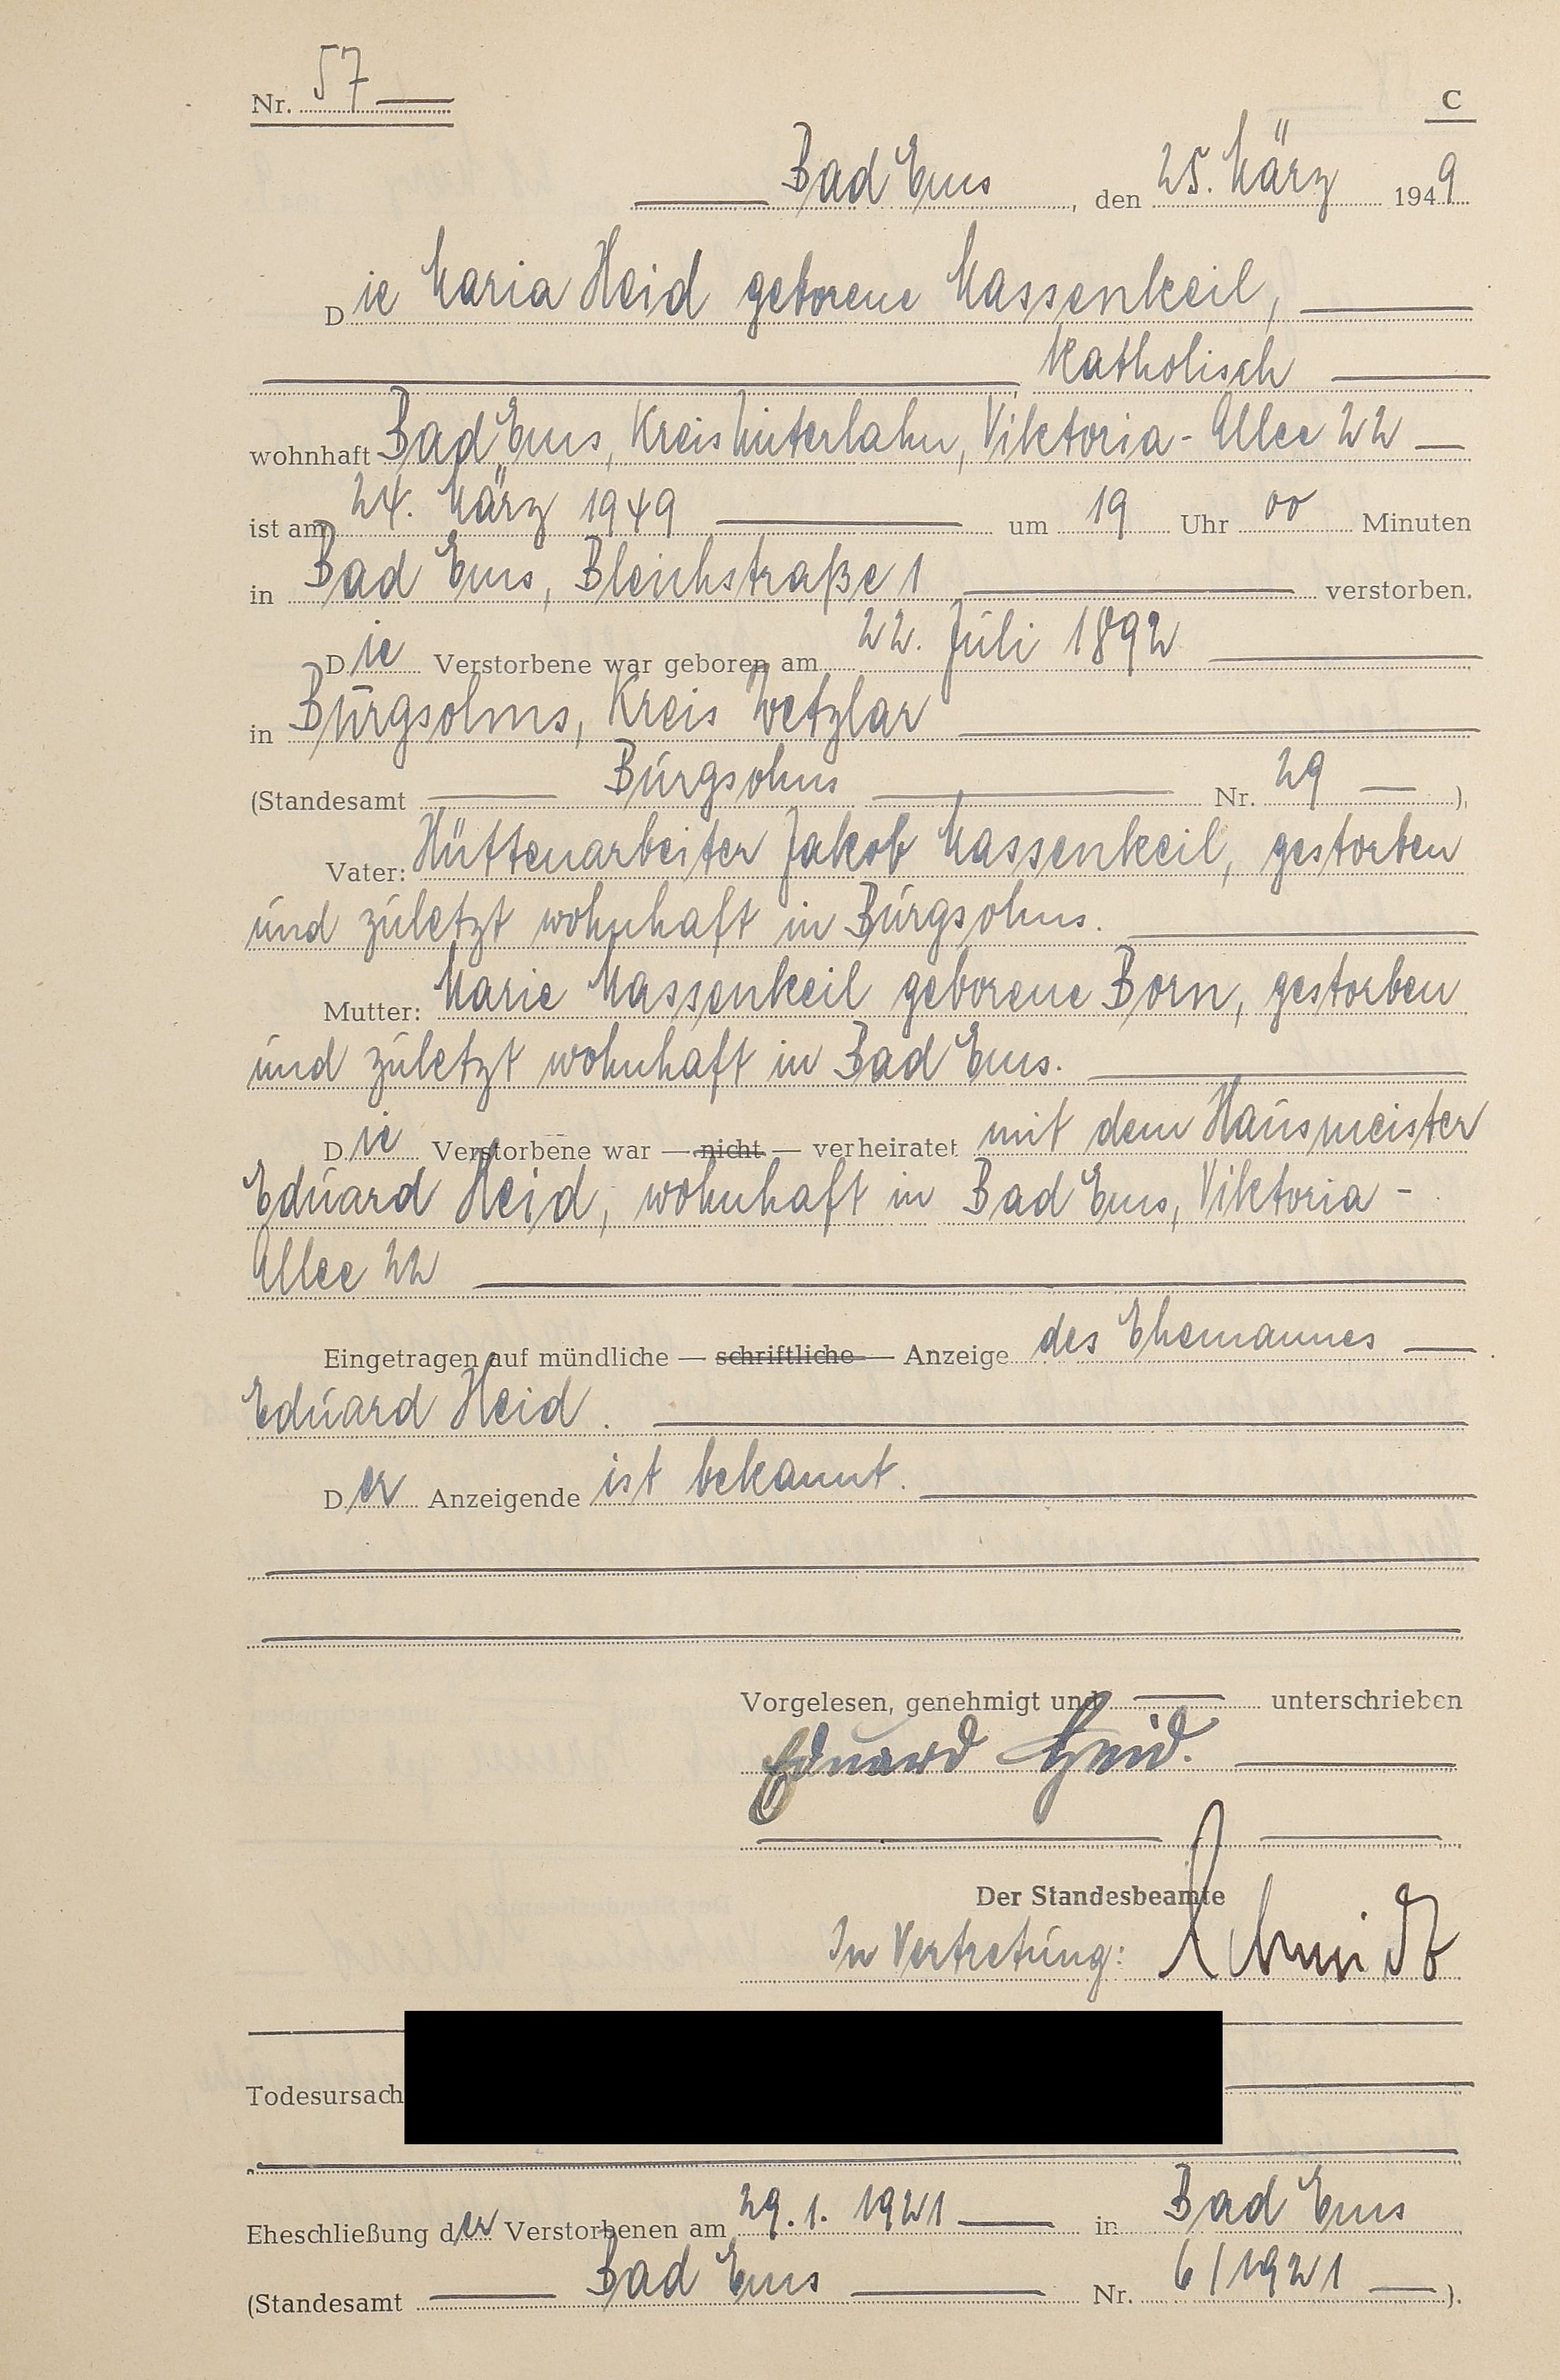 Nr. 57
C
Bad Ems, den 25. März 1949
Die Maria Heid geborene Massenkeil,
katholisch
wohnhaft Bad Ems, Kreis Unterlahn, Viktoria-Allee 22
ist am 24. März 1949 um 19 Uhr 00 Minuten
in Bad Ems, Bleichstraße 1 verstorben.
Die Verstorbene war geboren am 22. Juli 1892
in Burgsolms, Kreis Wetzlar
(Standesamt Burgsolms Nr. 29 ).
Vater: Hüttenarbeiter Jakob Massenkeil, gestorben
und zuletzt wohnhaft in Burgsolms.
Mutter: Marie Massenkeil geborene Born, gestorben
und zuletzt wohnhaft in Bad Ems.
Die Verstorbene war — nicht — verheiratet mit dem Hausmeister
Eduard Heid, wohnhaft in Bad Ems, Viktoria-
Allee 22
Eingetragen auf mündliche — schriftliche — Anzeige des Ehemannes
Eduard Heid.
Der Anzeigende ist bekannt.
Vorgelesen, genehmigt und unterschrieben
Eduard Heid.
Der Standesbeamte
In Vertretung: Schmidt
Todesursach
Eheschließung der Verstorbenen am 29.1.1921 in Bad Ems
(Standesamt Bad Ems Nr. 6/1921 ).